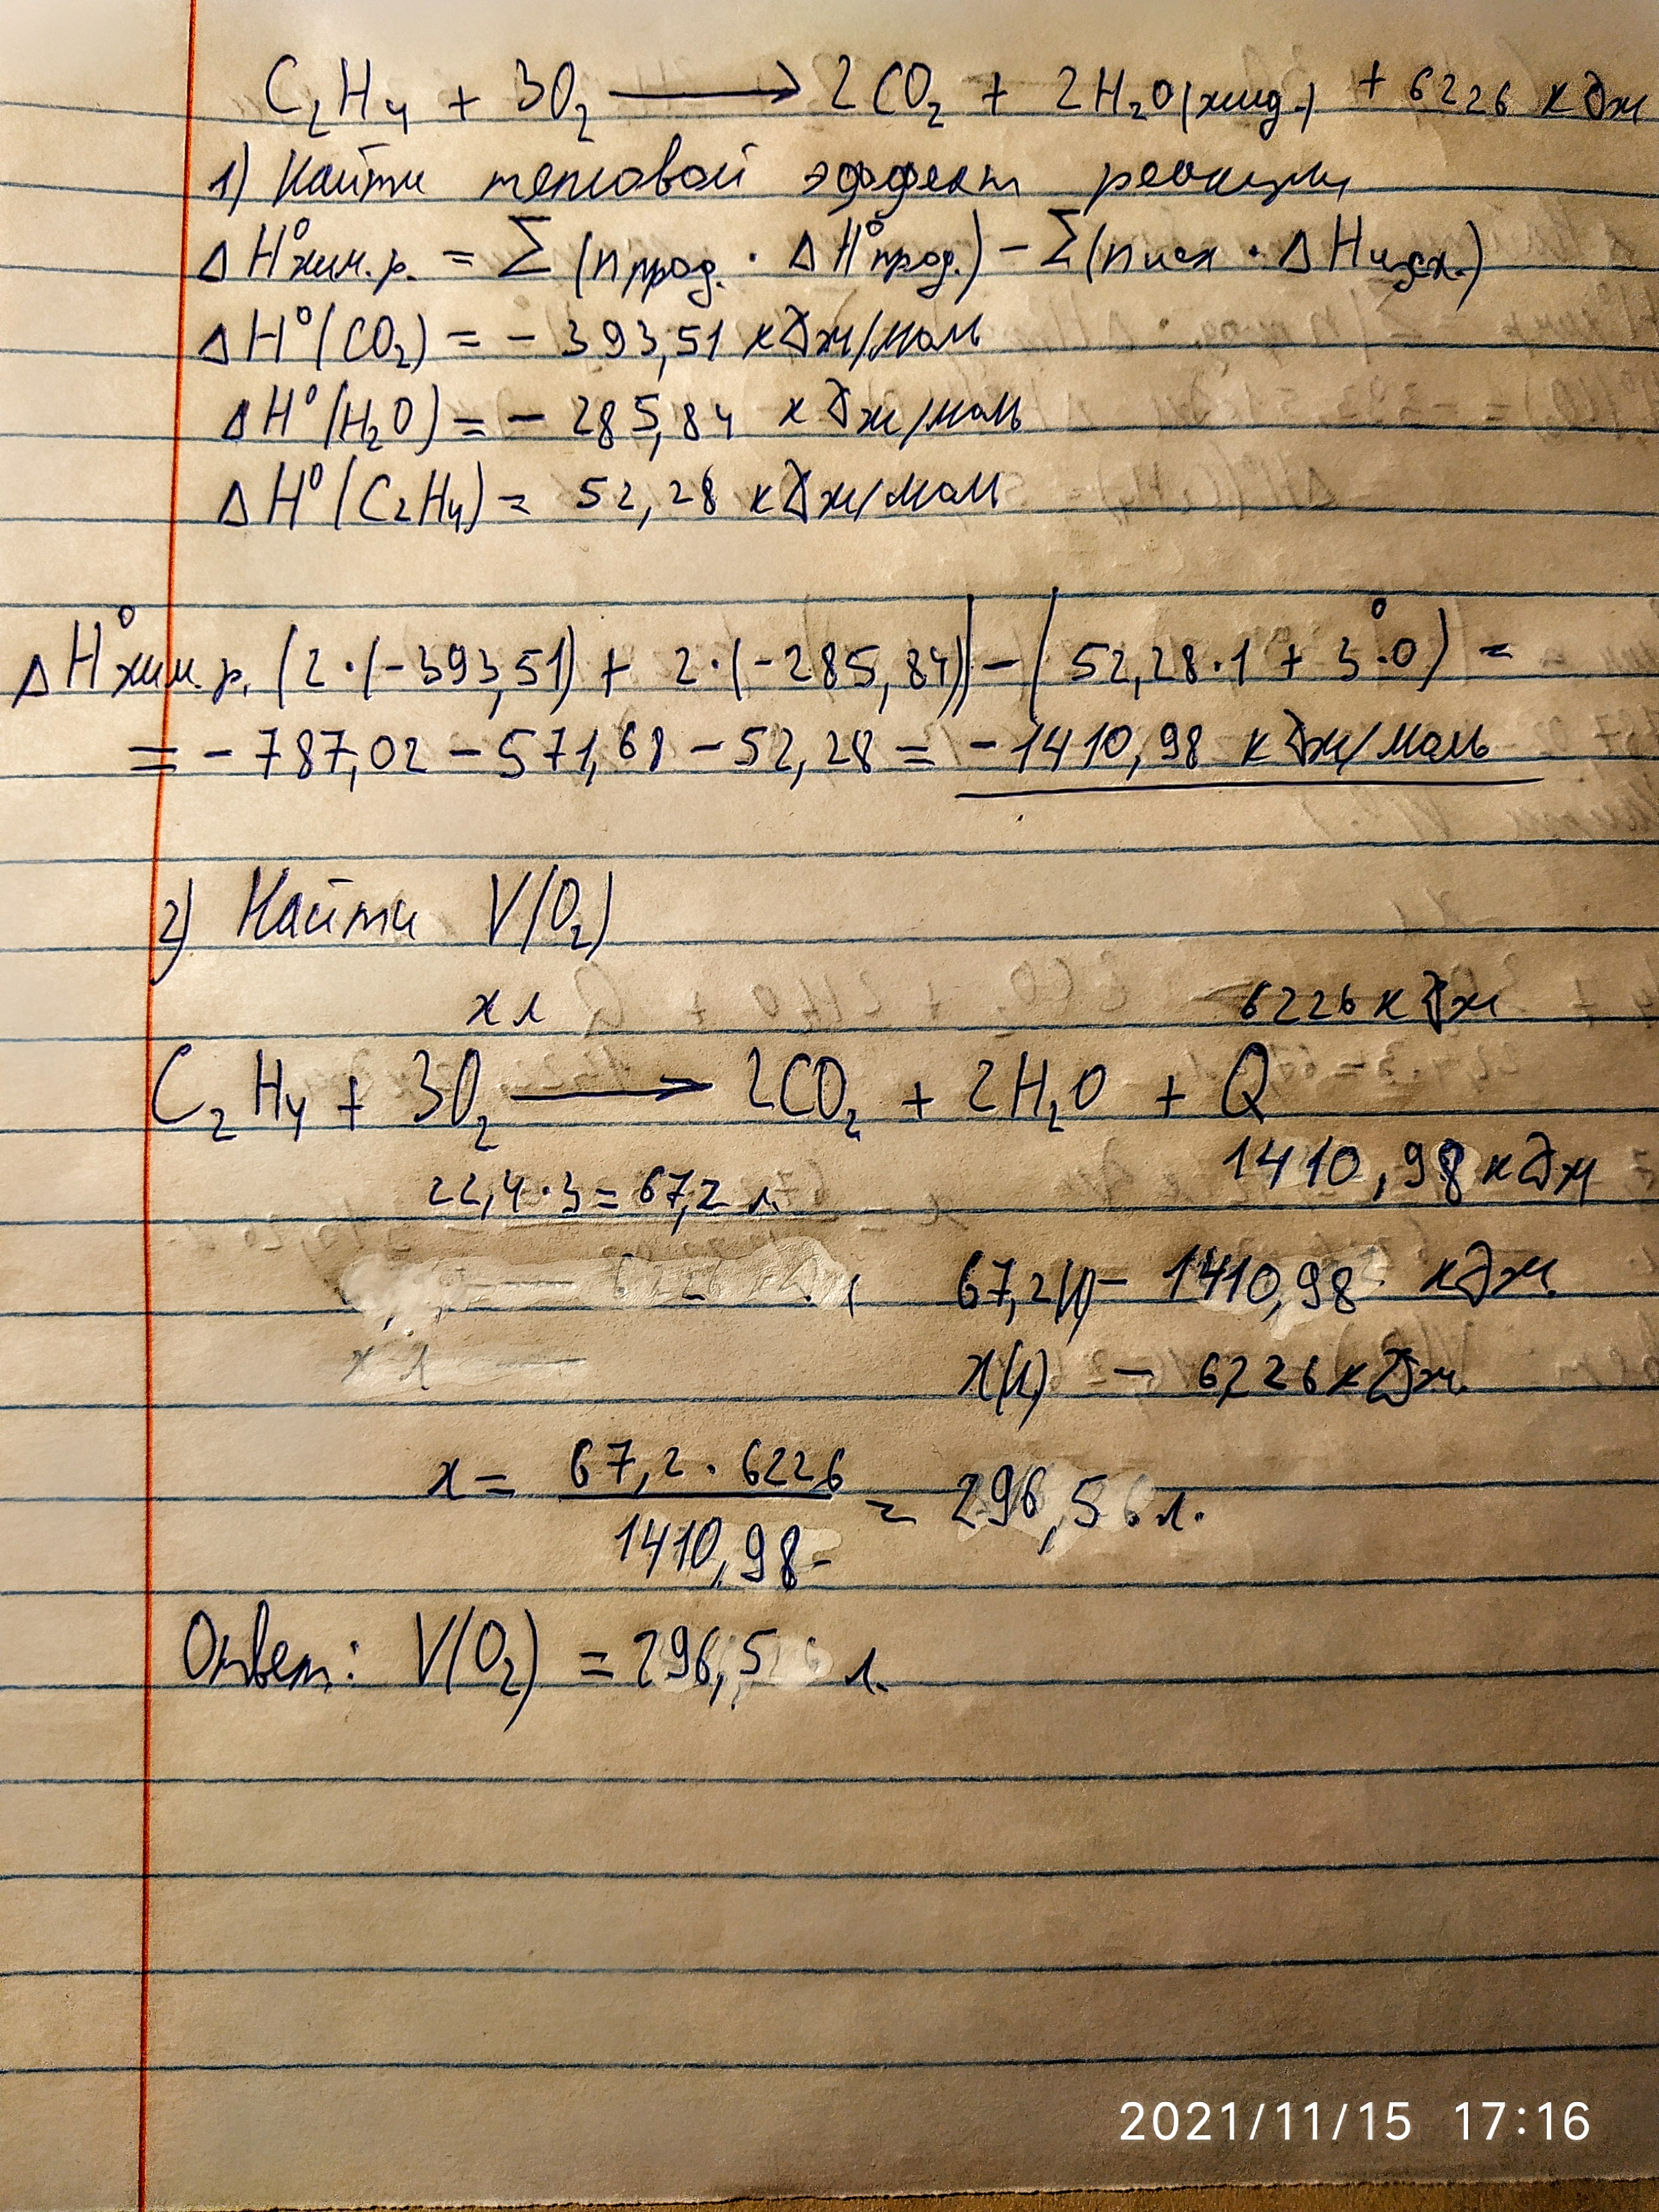 C₂H₄ + 3O₂ ⟶ 2CO₂ + 2H₂O(жид.) + 6226 кДж
1) Найти тепловой эффект реакции
ΔH°хим.р. = Σ(nпрод. · ΔH°прод.) - Σ(nисх · ΔHисх.)
ΔH°(CO₂) = - 393,51 кДж/моль
ΔH°(H₂O) = - 285,84 кДж/моль
ΔH°(C₂H₄) = 52,28 кДж/моль
ΔH°хим.р. (2·(-393,51) + 2·(-285,84)) - (52,28·1 + 3·0) =
= - 787,02 - 571,68 - 52,28 = -1410,98 кДж/моль
2) Найти V(O₂)
x л 6226 кДж
C₂H₄ + 3O₂ ⟶ 2CO₂ + 2H₂O + Q
22,4·3 = 67,2 л. 1410,98 кДж
67,2(л) - 1410,98 кДж.
x(л) - 6226 кДж.
x = 67,2 · 6226 / 1410,98 = 296,5 л.
Ответ: V(O₂) = 296,5 л.
2021/11/15 17:16